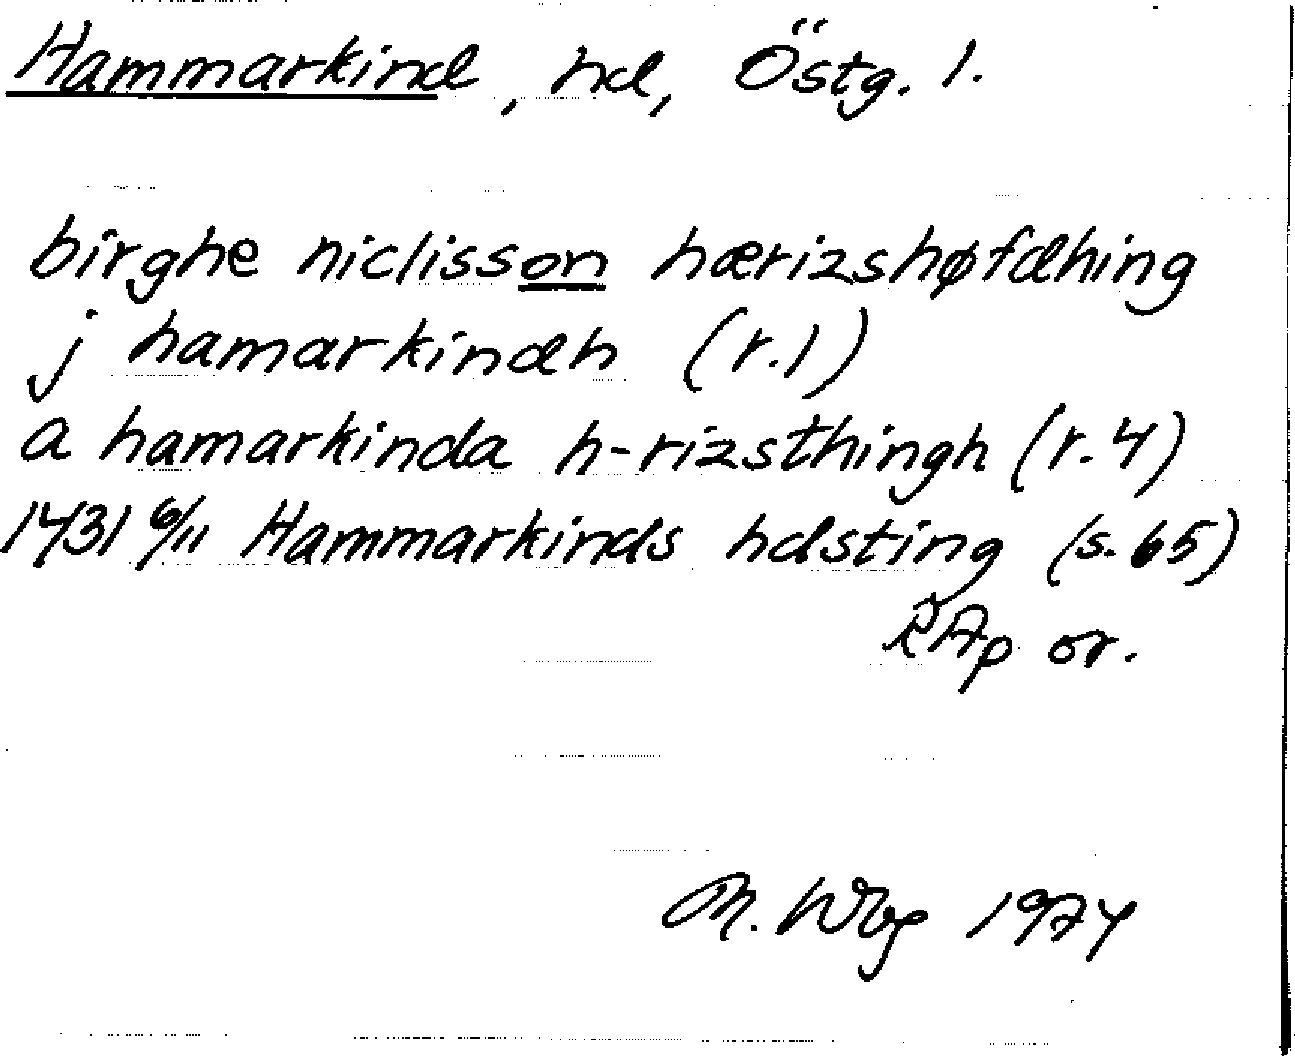 Hammarkind, hd, Östg. l.
birghe niclisson hærizshøfdhing
j hamarkindh (r.1)
a hamarkinda h-rizsthingh (r.4)
1431 6/11 Hammarkinds hdsting (s. 65)
RAp or.
M. Wbg 1974